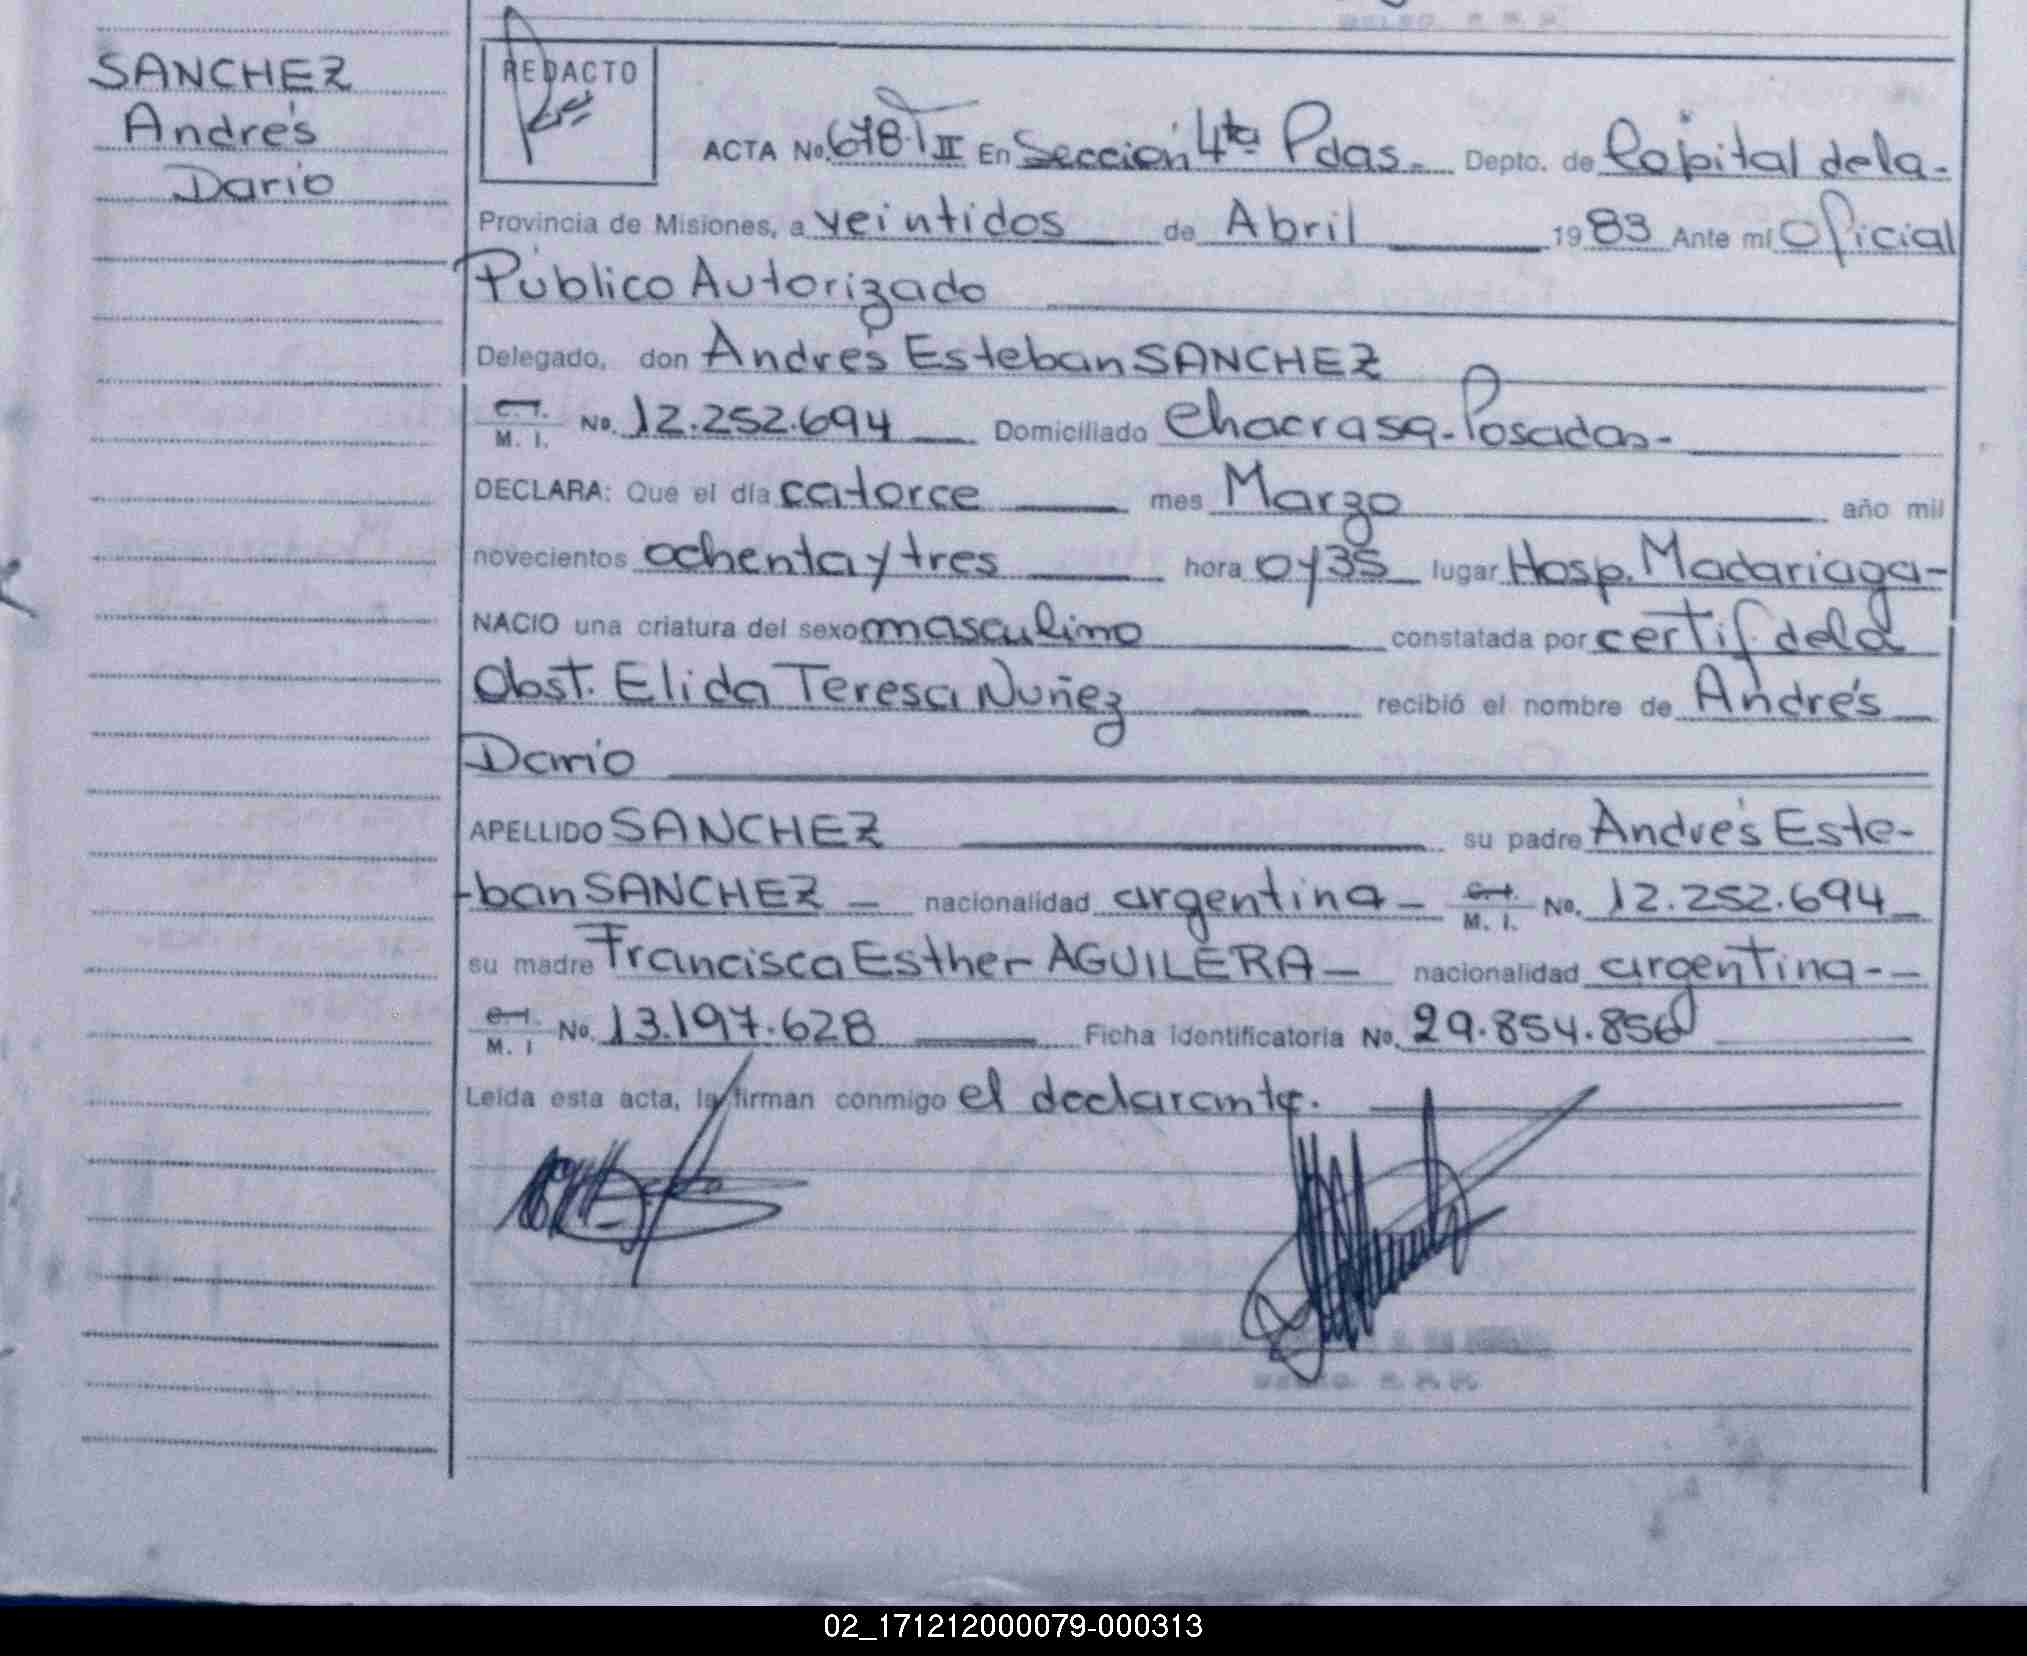 SANCHEZ
Andrés
Dario
REDACTO
ACTA No. 678 T II En Sección 4ta Pdas. Depto. de Capital de la
Provincia de Misiones, a veintidos de Abril 1983 Ante mi Oficial
Público Autorizado
Delegado, don Andrés Esteban SANCHEZ
C.I. M. I. No. 12.252.694 Domiciliado Chacra 59 - Posadas -
DECLARA: Que el día catorce mes Marzo año mil
novecientos ochenta y tres hora 0 y 35 lugar Hosp. Madariaga -
NACIO una criatura del sexo masculino constatada por certif. de la
Obst. Elida Teresa Nuñez recibió el nombre de Andrés
Dario
APELLIDO SANCHEZ su padre Andrés Este-
-ban SANCHEZ - nacionalidad argentina - C.I. M. I. No. 12.252.694
su madre Francisca Esther AGUILERA - nacionalidad argentina - -
C.I. M. I No. 13.197.628 Ficha identificatoria No. 29.854.856
Leida esta acta, la firman conmigo el declarante.
02_171212000079-000313